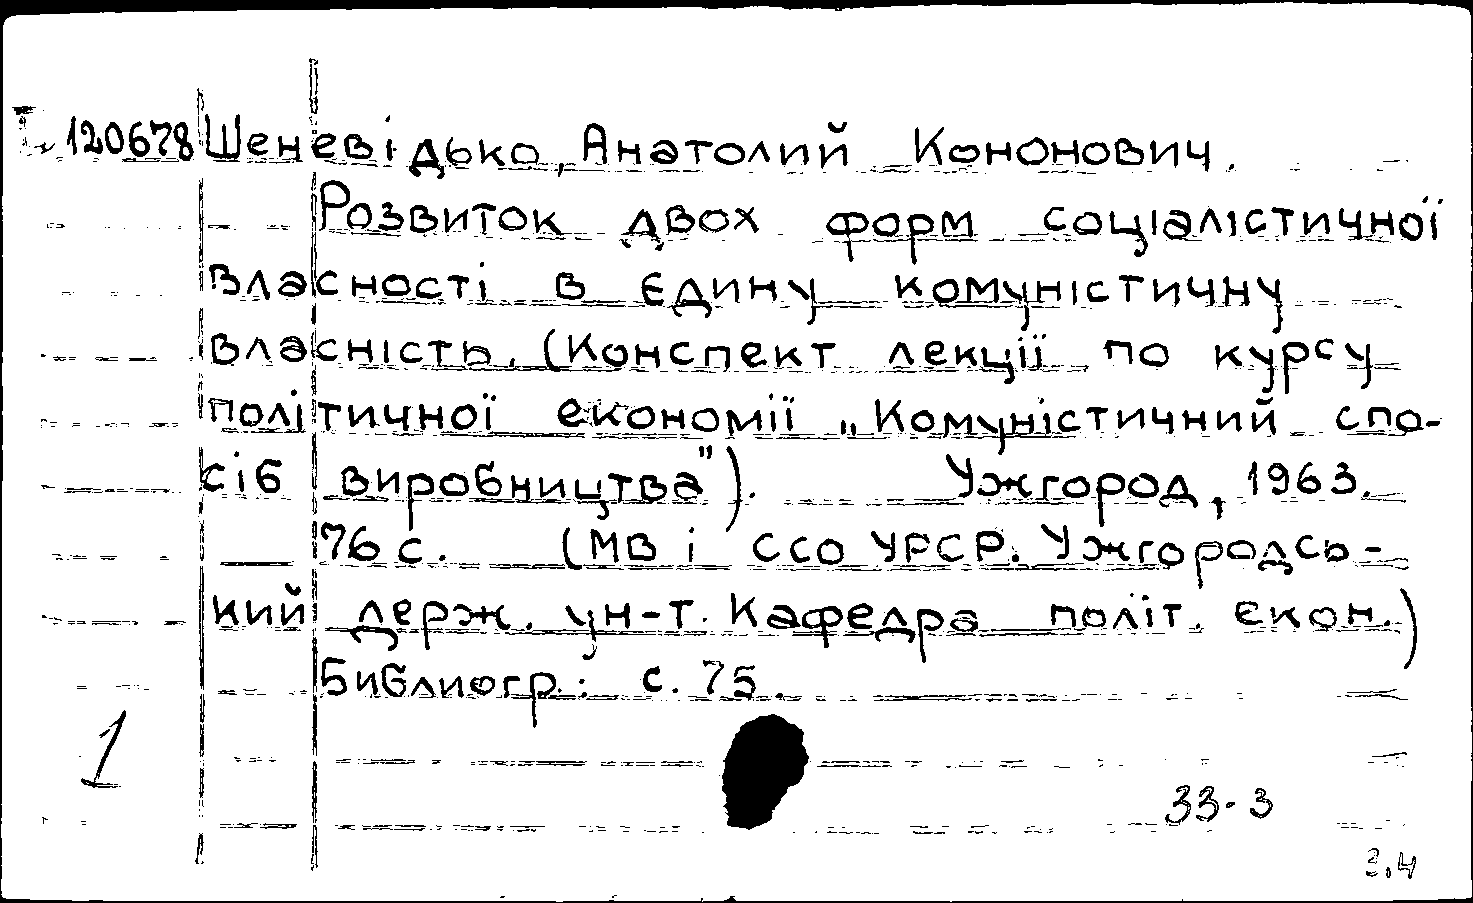 120678 Шеневідько, Анатолий Кононович.
Розвиток двох форм соціалістичної
власності в єдину комуністичну
власність. (Конспект лекції по курсу
політичної економії „Комуністичний спо-
сіб виробництва"). Ужгород, 1963.
76 с. (МВ і ССО УРСР. Ужгородсь-
кий держ. ун-т. Кафедра політ. екон.)
Библиогр.: с. 75.
1
33-3
3.4